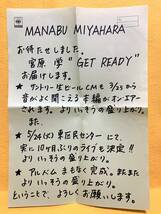 MANABU MIYAHARA
お待たせしました。
宮原 学 "GET READY"
お届けします。
★ サントリー生ビールCMも 3/25から
音がよく聞こえる本編がオンエアー
されます。よりいっそうの盛り上がり。
また、
★ 5/24(火) 東区民センターにて、
実に10ヶ月ぶりのライブを決定!!
よりいっそうの盛り上がり。
★ アルバムまもなく完成。またまた
よりいっそうの盛り上がり。
ということで、よろしくお願いします。